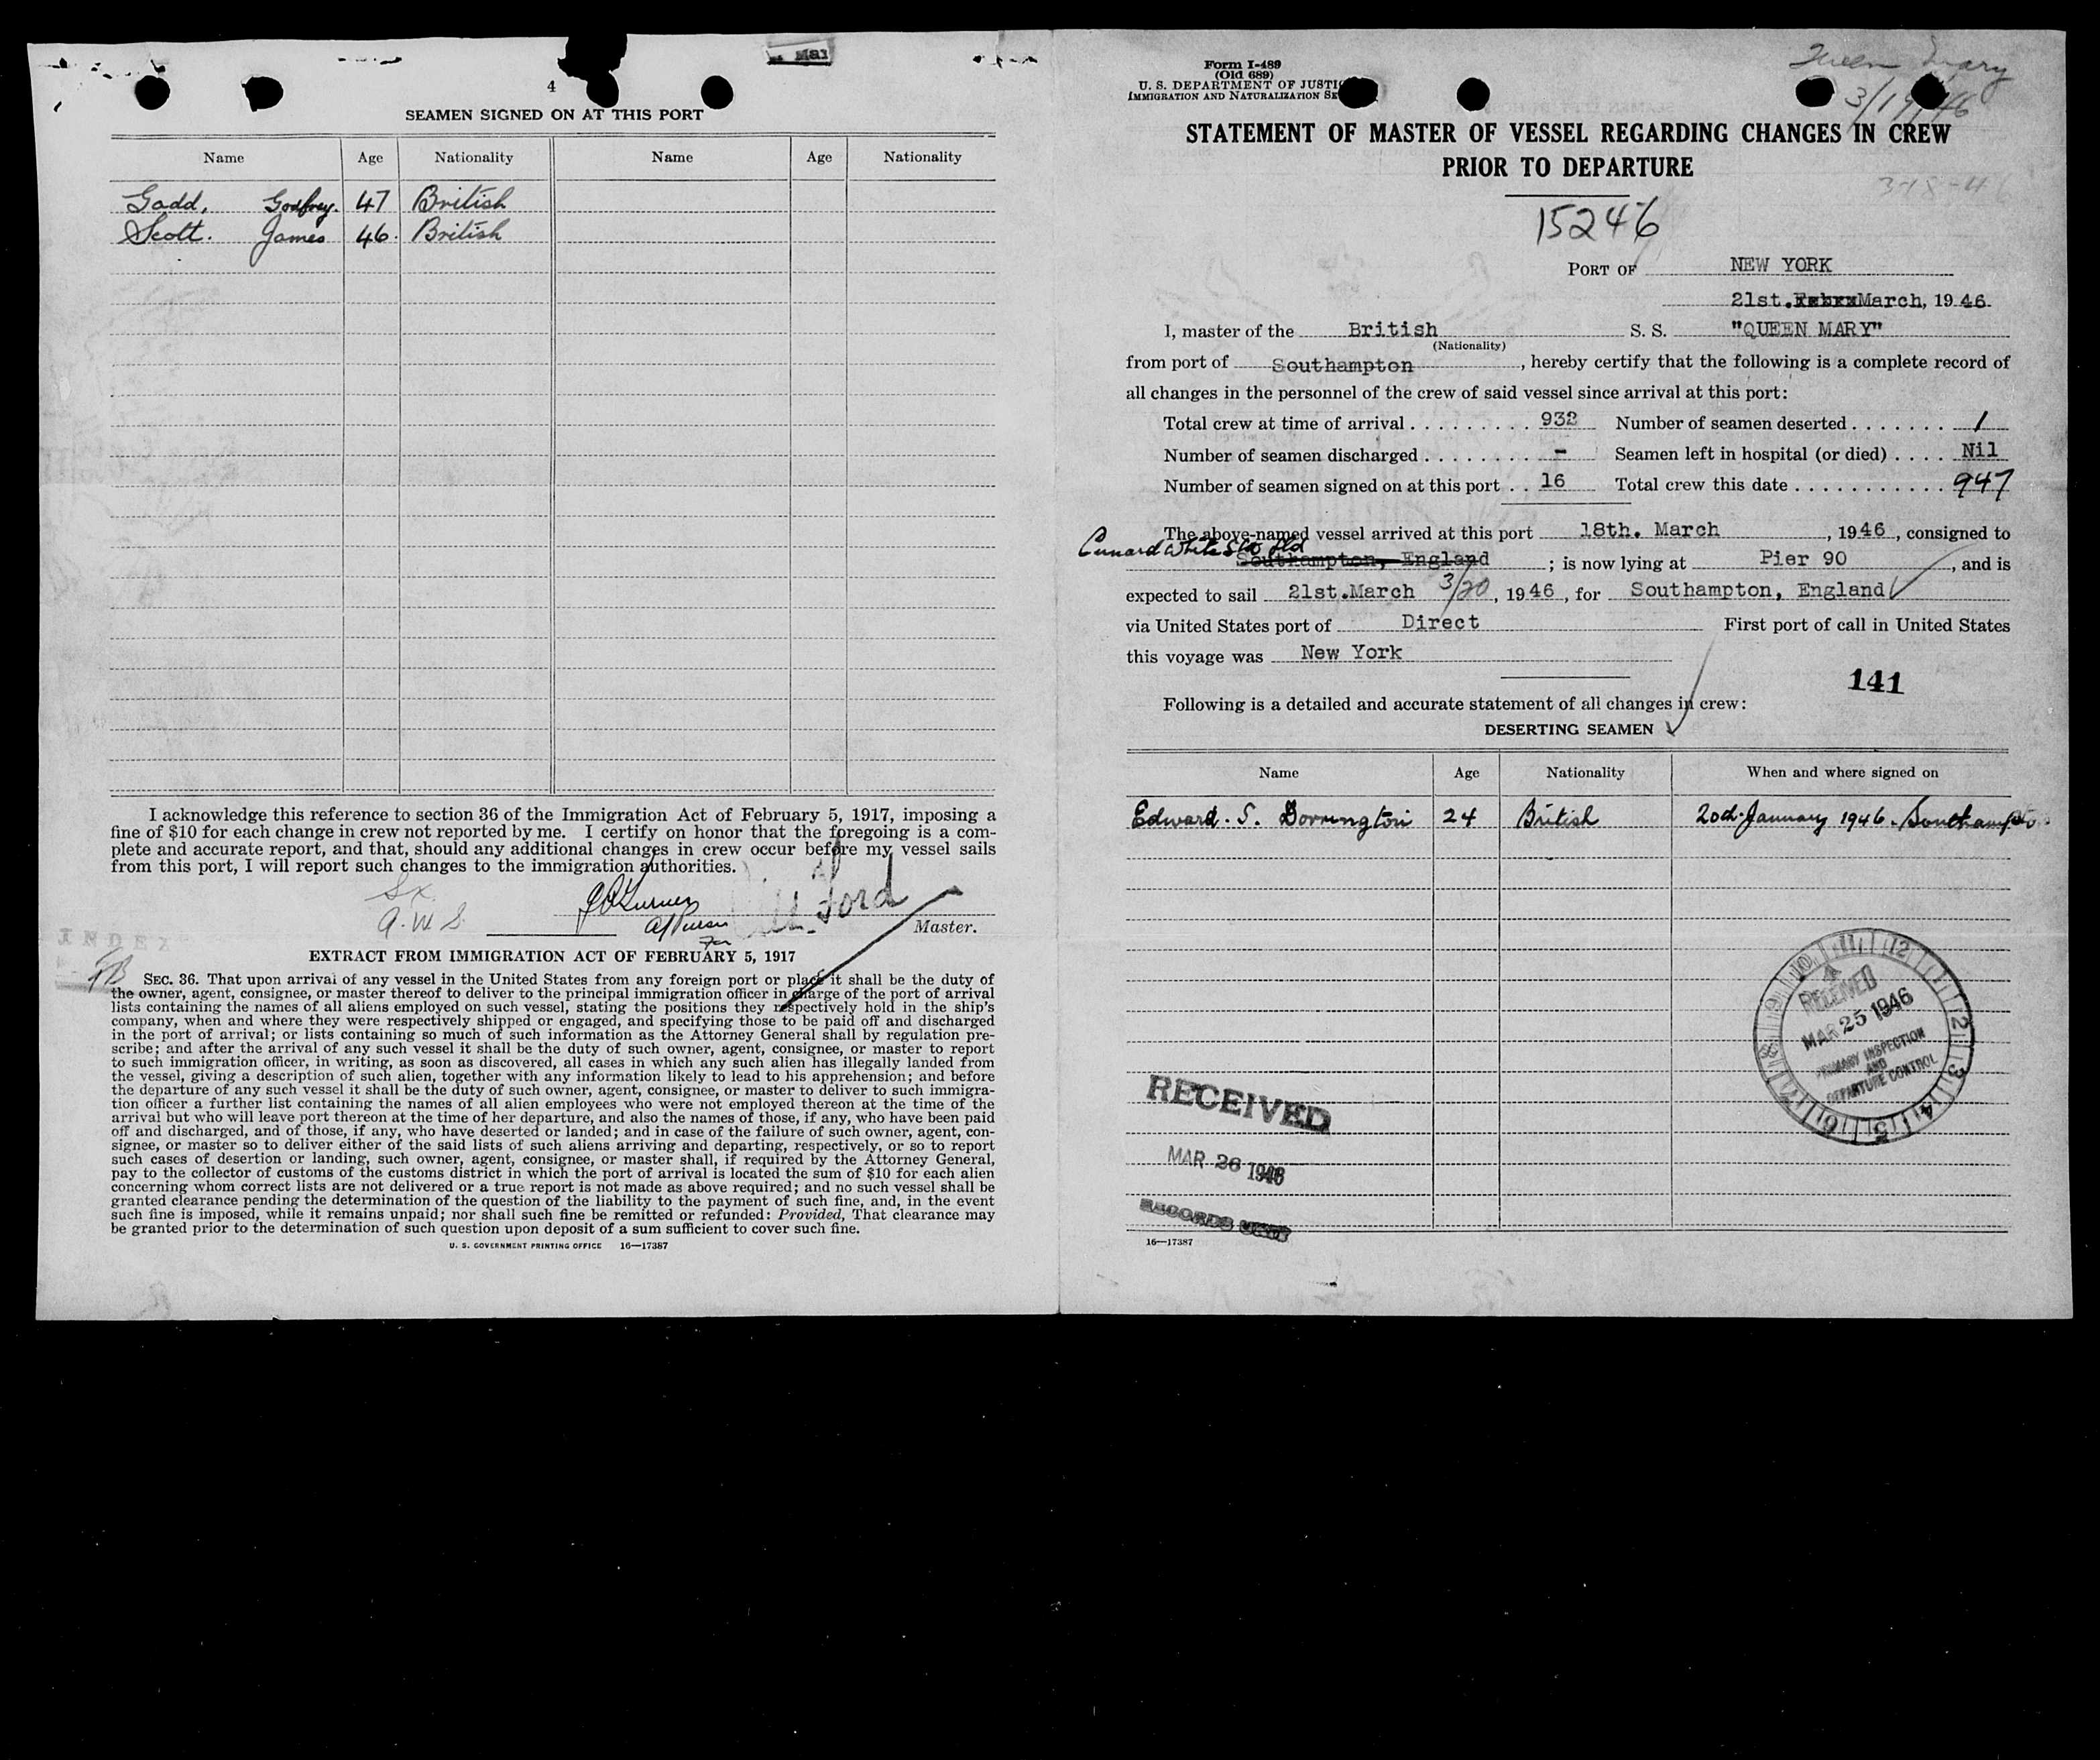 Mar
4
SEAMEN SIGNED ON AT THIS PORT
Name Age Nationality Name Age Nationality
Gadd, Godfrey. 47 British
Scott. James 46. British
I acknowledge this reference to section 36 of the Immigration Act of February 5, 1917, imposing a
fine of $10 for each change in crew not reported by me. I certify on honor that the foregoing is a com-
plete and accurate report, and that, should any additional changes in crew occur before my vessel sails
from this port, I will report such changes to the immigration authorities.
A.W.S.
Turner
For
Ford
Master.
INDEX
EXTRACT FROM IMMIGRATION ACT OF FEBRUARY 5, 1917
SEC. 36. That upon arrival of any vessel in the United States from any foreign port or place it shall be the duty of
the owner, agent, consignee, or master thereof to deliver to the principal immigration officer in charge of the port of arrival
lists containing the names of all aliens employed on such vessel, stating the positions they respectively hold in the ship's
company, when and where they were respectively shipped or engaged, and specifying those to be paid off and discharged
in the port of arrival; or lists containing so much of such information as the Attorney General shall by regulation pre-
scribe; and after the arrival of any such vessel it shall be the duty of such owner, agent, consignee, or master to report
to such immigration officer, in writing, as soon as discovered, all cases in which any such alien has illegally landed from
the vessel, giving a description of such alien, together with any information likely to lead to his apprehension; and before
the departure of any such vessel it shall be the duty of such owner, agent, consignee, or master to deliver to such immigra-
tion officer a further list containing the names of all alien employees who were not employed thereon at the time of the
arrival but who will leave port thereon at the time of her departure, and also the names of those, if any, who have been paid
off and discharged, and of those, if any, who have deserted or landed; and in case of the failure of such owner, agent, con-
signee, or master so to deliver either of the said lists of such aliens arriving and departing, respectively, or so to report
such cases of desertion or landing, such owner, agent, consignee, or master shall, if required by the Attorney General,
pay to the collector of customs of the customs district in which the port of arrival is located the sum of $10 for each alien
concerning whom correct lists are not delivered or a true report is not made as above required; and no such vessel shall be
granted clearance pending the determination of the question of the liability to the payment of such fine, and, in the event
such fine is imposed, while it remains unpaid; nor shall such fine be remitted or refunded: Provided, That clearance may
be granted prior to the determination of such question upon deposit of a sum sufficient to cover such fine.
U. S. GOVERNMENT PRINTING OFFICE 16—17387
Form I-489
(Old 689)
U. S. DEPARTMENT OF JUSTI
IMMIGRATION AND NATURALIZATION SE
Queen Mary
3/19/46
STATEMENT OF MASTER OF VESSEL REGARDING CHANGES IN CREW
PRIOR TO DEPARTURE
3-18-4
15246
PORT OF NEW YORK
21st. March, 1946.
I, master of the British S. S. "QUEEN MARY"
(Nationality)
from port of Southampton, hereby certify that the following is a complete record of
all changes in the personnel of the crew of said vessel since arrival at this port:
Total crew at time of arrival . . . . . . . . . 932 Number of seamen deserted . . . . . . . 1
Number of seamen discharged . . . . . . . . - Seamen left in hospital (or died) . . . . Nil
Number of seamen signed on at this port . . 16 Total crew this date . . . . . . . . . . . . 947
The above-named vessel arrived at this port 18th. March, 1946, consigned to
Cunard White Star Ltd
Southampton, England; is now lying at Pier 90, and is
expected to sail 21st.March 3/20, 1946, for Southampton, England
via United States port of Direct First port of call in United States
this voyage was New York
141
Following is a detailed and accurate statement of all changes in crew:
DESERTING SEAMEN
Name Age Nationality When and where signed on
Edward. S. Dorrington 24 British 20th January 1946. Southampton
RECEIVED
MAR 25 1946
PRIMARY INSPECTION
AND
DEPARTURE CONTROL
RECEIVED
MAR 26 1946
RECORDS UNIT
16—17387